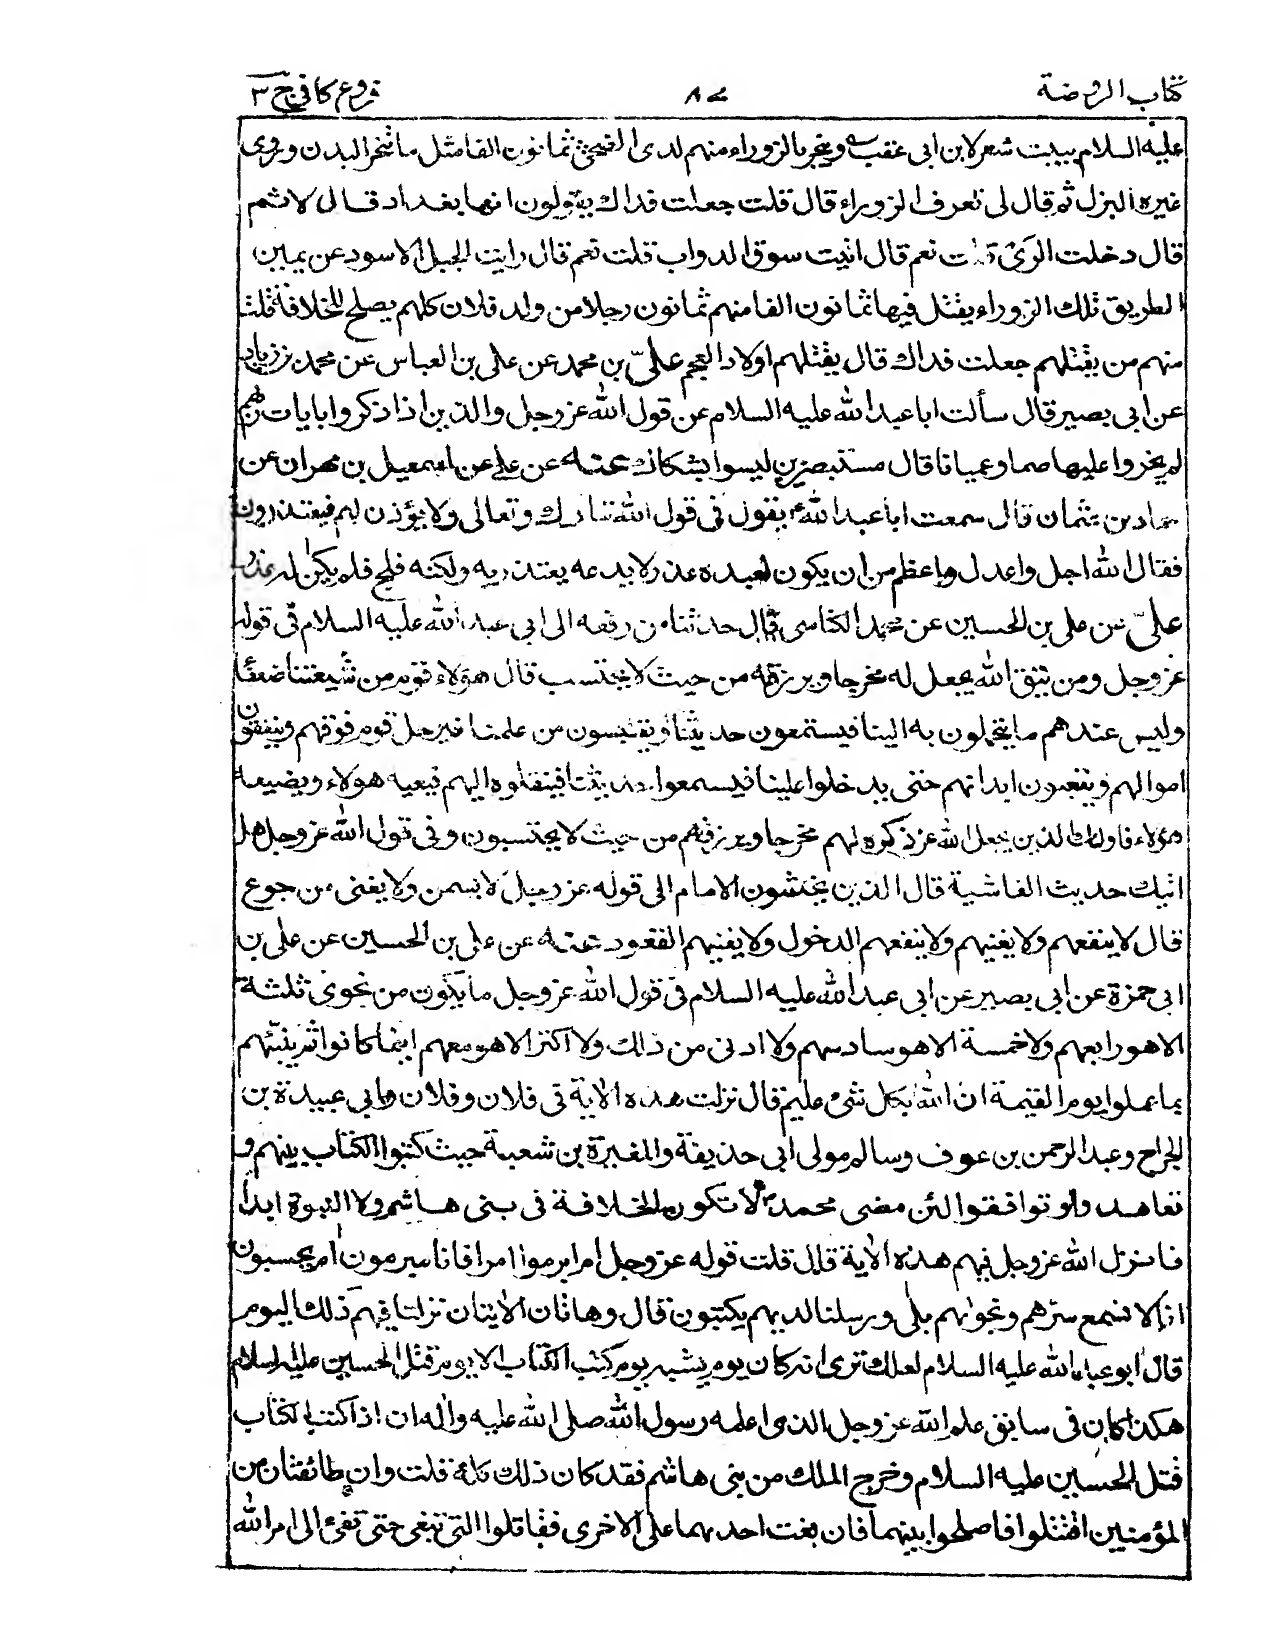 كتاب الروضة ٨٧ فروع كافي ج ٣
عليه السلام ببيت شعر لابن ابى عقب وينحر بالزوراء منهم لدى الضحى ثمانون الفا مثل ما تنحر البدن وروى
غيره البزل ثم قال لى تعرف الزوراء قال قلت جعلت فداك يقولون انها بغداد قال لا ثم
قال دخلت الرى قلت نعم قال اتيت سوق الدواب قلت نعم قال رايت الجبل الاسود عن يمين
الطريق تلك الزوراء يقتل فيها ثمانون الفا منهم ثمانون رجلا من ولد فلان كلهم يصلح للخلافة قلت
منهم من يقتلهم جعلت فداك قال يقتلهم اولاد العجم علىّ بن محمد عن على بن العباس عن محمد بن زياد
عن ابى بصير قال سألت ابا عبد الله عليه السلام عن قول الله عز وجل والذين اذا ذكروا بايات ربهم
لم يخروا عليها صما وعميانا قال مستبصرين ليسوا بشكاك عنه عن على عن اسمعيل بن مهران عن
حماد بن عثمان قال سمعت ابا عبد الله ع يقول فى قول الله تبارك وتعالى ولا يؤذن لهم فيعتذرون
فقال الله اجل واعدل واعظم من ان يكون لعبده عذر لا يدعه يعتذر به ولكنه فلج فلم يكن له عذر
علىّ عن على بن الحسين عن محمد الكناسى قال حدثنا من رفعه الى ابى عبد الله عليه السلام فى قوله
عز وجل ومن يتق الله يجعل له مخرجا ويرزقه من حيث لا يحتسب قال هؤلاء قوم من شيعتنا ضعفاء
وليس عندهم ما يتحملون به الينا فيستمعون حديثنا ويقتبسون من علمنا فيرحل قوم فوقهم وينفقون
اموالهم ويتعبون ابدانهم حتى يدخلوا علينا فيسمعوا حديثنا فينقلوه اليهم فيعيه هولاء ويضيعه
هؤلاء فاولئك الذين يجعل الله عز ذكره لهم مخرجا ويرزقهم من حيث لا يحتسبون وفى قول الله عز وجل هل
اتيك حديث الغاشية قال الذين يغشون الامام الى قوله عز وجل لا يسمن ولا يغنى من جوع
قال لا ينفعهم ولا يغنيهم ولا ينفعهم الدخول ولا يغنيهم القعود عنه عن على بن الحسين عن على بن
ابى حمزة عن ابى بصير عن ابى عبد الله عليه السلام فى قول الله عز وجل ما يكون من نجوى ثلثة
الا هو رابعهم ولا خمسة الا هو سادسهم ولا ادنى من ذلك ولا اكثر الا هو معهم اينما كانوا ثم ينبّئهم
بما عملوا يوم القيمة ان الله بكل شئ عليم قال نزلت هذه الاية فى فلان وفلان وابى عبيدة بن
الجراح وعبد الرحمن بن عوف وسالم مولى ابى حذيفة والمغيرة بن شعبة حيث كتبوا الكتاب بينهم و
تعاهدوا وتوافقوا لئن مضى محمد ص لا تكون الخلافة فى بنى هاشم ولا النبوة ابدا
فانزل الله عز وجل فيهم هذه الاية قال قلت قوله عز وجل ام ابرموا امرا فانا مبرمون ام يحسبون
انا لا نسمع سرّهم ونجواهم بلى ورسلنا لديهم يكتبون قال وهاتان الايتان نزلتا فيهم ذلك اليوم
قال ابو عبد الله عليه السلام لعلك ترى انه كان يوم يشبه يوم كتب الكتاب الا يوم قتل الحسين عليه السلام
هكذا كان فى سابق علم الله عز وجل الذى اعلمه رسول الله صلى الله عليه واله ان اذا كتب الكتاب
قتل الحسين عليه السلام وخرج الملك من بنى هاشم فقد كان ذلك كله قلت وان طائفتان من
المؤمنين اقتتلوا فاصلحوا بينهما فان بغت احديهما على الاخرى فقاتلوا التى تبغى حتى تفئ الى امر الله